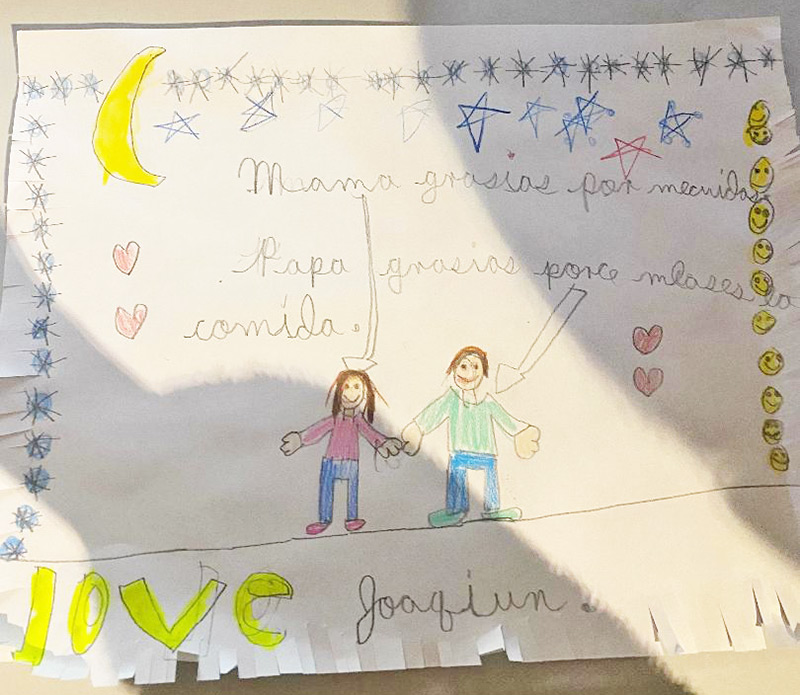 Mama grasias por mecuidas
Papa grasias porce mlases la
comida.
love Joaqiun.